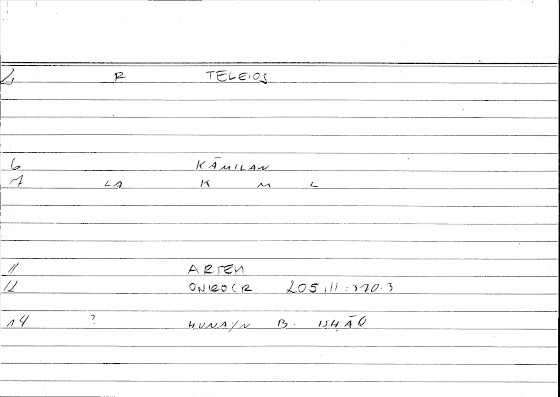 4 R TELEIOS
6 KĀMILAN
7 LA K M L
11 ARTEM
12 ONIROCR 205,11:370.3
14 ? HUNAYN B. ISHĀQ